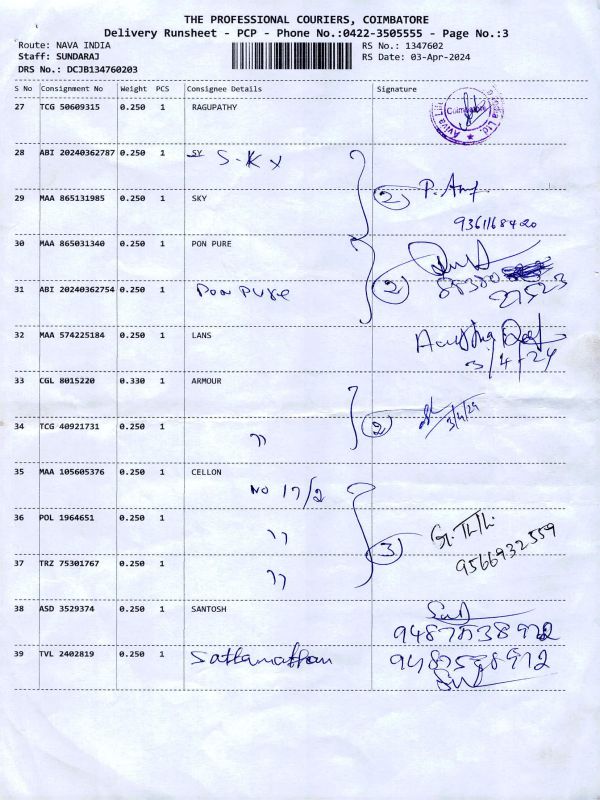 THE PROFESSIONAL COURIERS, COIMBATORE
Delivery Runsheet - PCP - Phone No.:0422-3505555 - Page No.:3
Route: NAVA INDIA RS No.: 1347602
Staff: SUNDARAJ RS Date: 03-Apr-2024
DRS No.: DCJB134760203
S No Consignment No Weight PCS Consignee Details Signature
27 TCG 50609315 0.250 1 RAGUPATHY
Coimbatore
28 ABI 20240362787 0.250 1 SY S-KY
29 MAA 865131985 0.250 1 SKY 2 P.
9361168420
30 MAA 865031340 0.250 1 PON PURE
31 ABI 20240362754 0.250 1 Pon pure 2
27523
32 MAA 574225184 0.250 1 LANS
3/4/24
33 CGL 8015220 0.330 1 ARMOUR
34 TCG 40921731 0.250 1 " 2 3/4/24
35 MAA 105605376 0.250 1 CELLON
NO 17/2
36 POL 1964651 0.250 1 "
3 9566932559
37 TRZ 75301767 0.250 1 "
38 ASD 3529374 0.250 1 SANTOSH
39 TVL 2402819 0.250 1